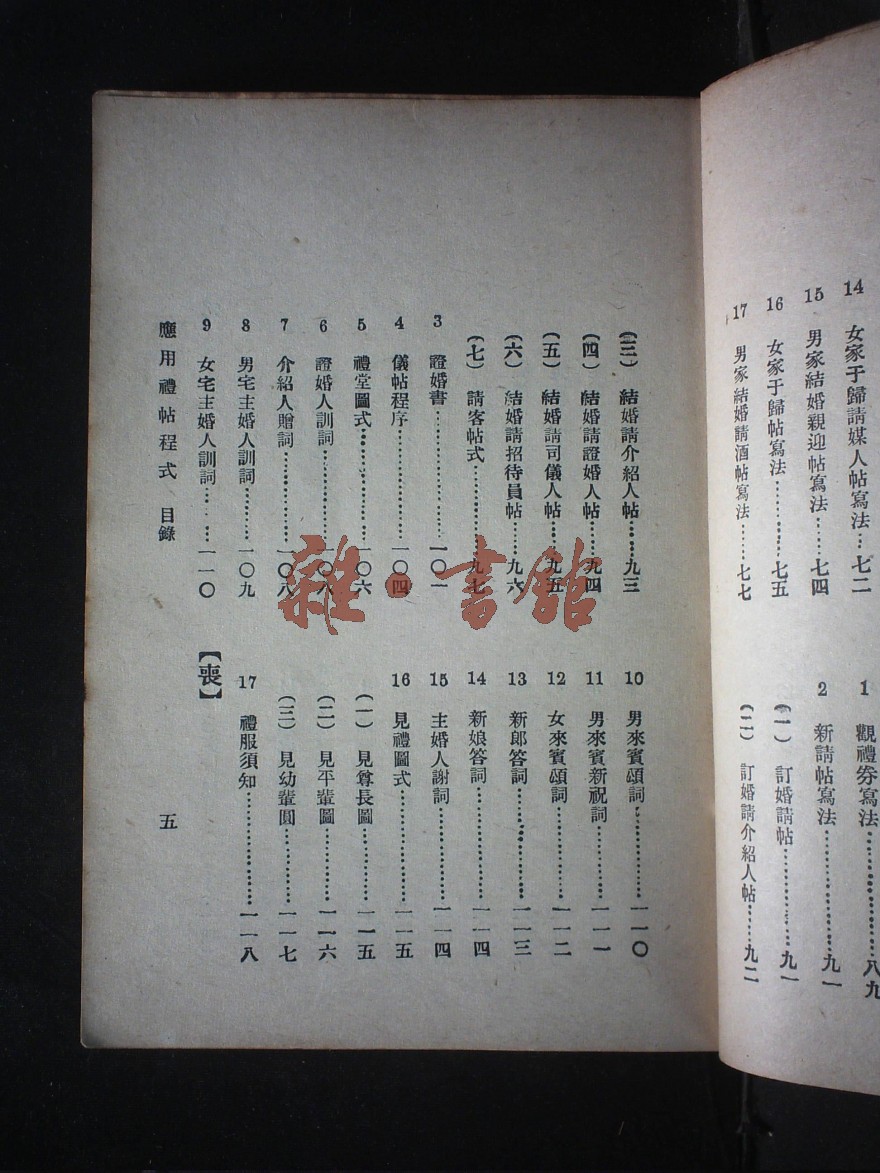 14 女家于歸請媒人帖寫法…七二
15 男家結婚親迎帖寫法……七四
16 女家于歸帖寫法………七五
17 男家結婚請酒帖寫法……七七
1 觀禮券寫法……………八九
2 新請帖寫法……………九一
(一) 訂婚請帖……………九一
(二) 訂婚請介紹人帖………九二
(三) 結婚請介紹人帖……九三
(四) 結婚請證婚人帖……九四
(五) 結婚請司儀人帖……九五
(六) 結婚請招待員帖……九六
(七) 請客帖式…………九七
3 證婚書………………一〇一
4 儀帖程序……………一〇四
5 禮堂圖式……………一〇六
6 證婚人訓詞…………一〇八
7 介紹人贈詞…………一〇八
8 男宅主婚人訓詞………一〇九
9 女宅主婚人訓詞………一一〇
10 男來賓頌詞……………一一〇
11 男來賓新祝詞…………一一一
12 女來賓頌詞……………一一二
13 新郎答詞………………一一三
14 新娘答詞………………一一四
15 主婚人謝詞……………一一四
16 見禮圖式………………一一五
(一) 見尊長圖…………一一五
(二) 見平輩圖…………一一六
(三) 見幼輩圓…………一一七
17 禮服須知………………一一八
【喪】
應用禮帖程式 目錄
五
雜·書館